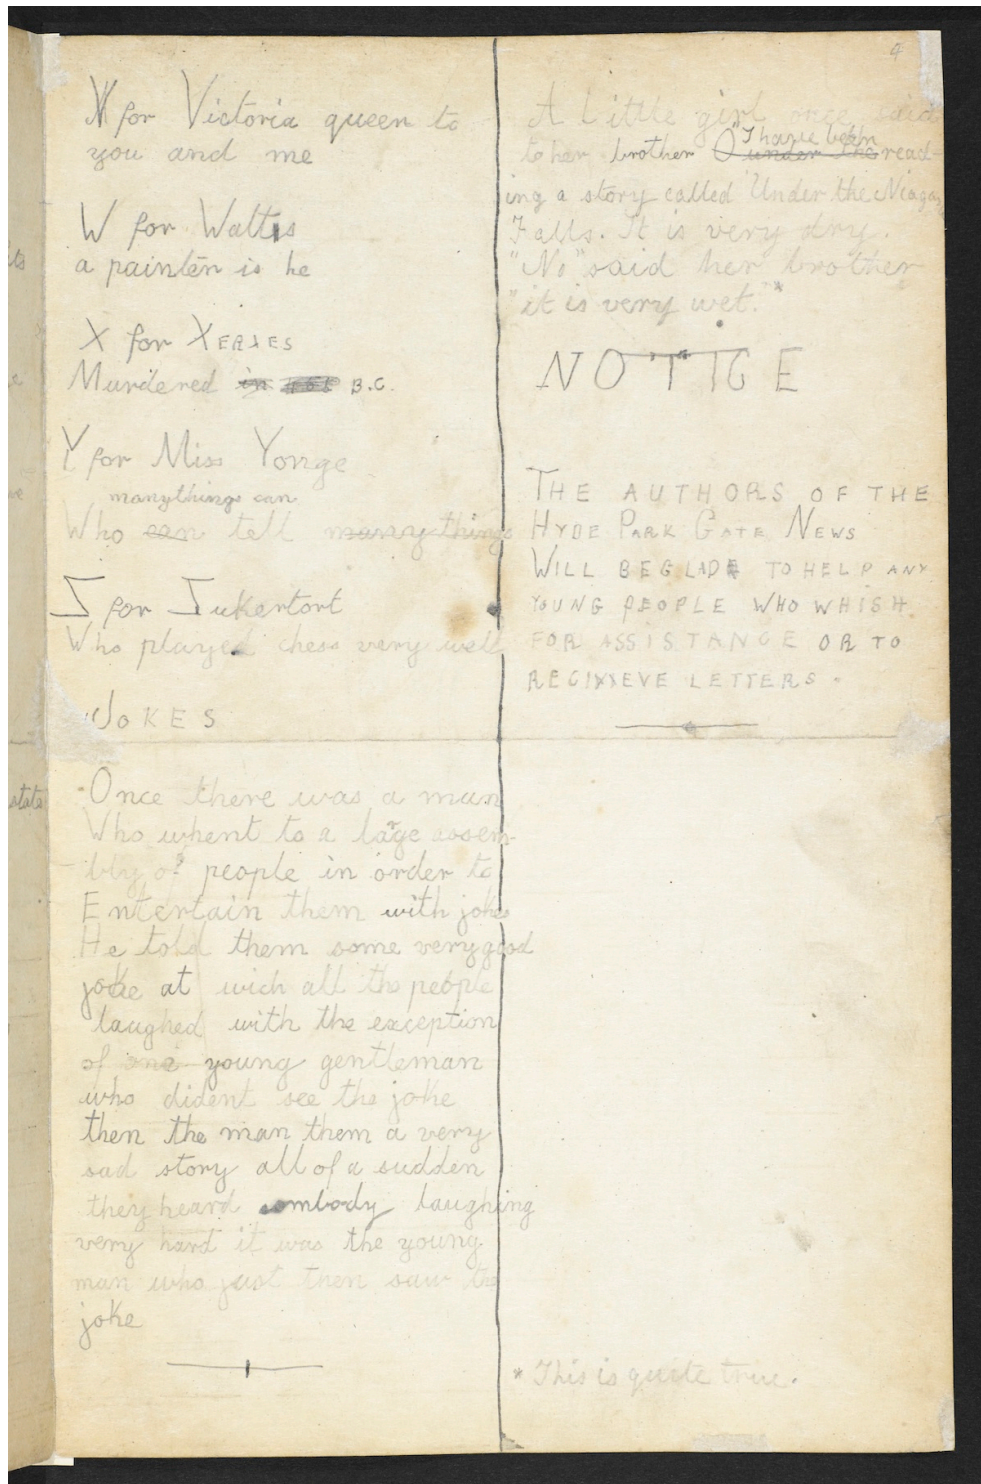 4
V for Victoria queen to
you and me
W for Watts
a painter is he
X for XERXES
Murdered in B.C.
Y for Miss Yonge
manythings can
Who can tell many things
Z for Zukertort
Who played chess very well
JOKES
Once there was a man
Who whent to a large assem-
bly of people in order to
Entertain them with jokes
He told them some very good
joke at wich all the people
laughed with the exception
of one young gentleman
who dident see the joke
then the man them a very
sad story all of a sudden
they heard sombody laughing
very hard it was the young
man who just then saw the
joke
A little girl once said
to her brother O "I have been
under the read-
ing a story called "Under the Niagara
Falls. It is very dry.
"No" said her brother
"it is very wet."*
NOTICE
THE AUTHORS OF THE
HYDE PARK GATE NEWS
WILL BE GLAD TO HELP ANY
YOUNG PEOPLE WHO WHISH
FOR ASSISTANCE OR TO
RECIXIEVE LETTERS.
* This is quite true.